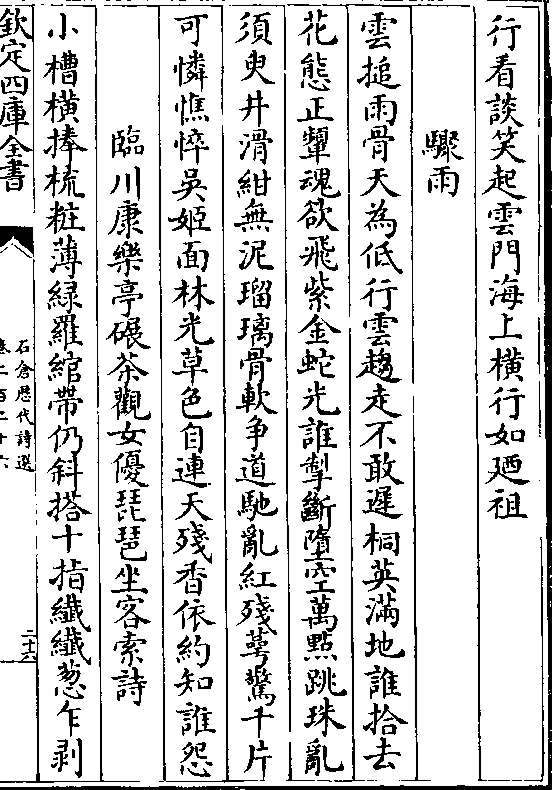 行看談笑起雲門海上橫行如廼祖
驟雨
雲搥雨骨天為低行雲趨走不敢遲桐英滿地誰拾去
花態正顰魂欲飛紫金蛇光誰掣斷墮空萬點跳珠亂
須臾井滑紺無泥瑠璃骨軟争道馳亂紅殘萼驚千片
可憐憔悴吳姬面林光草色自連天殘香依約知誰怨
臨川康樂亭碾茶觀女優琵琶坐客索詩
小槽横捧梳粧薄綠羅綰帶仍斜搭十指纖纖葱乍剥
欽定四庫全書
石倉歴代詩選
卷二百二十六
二十六